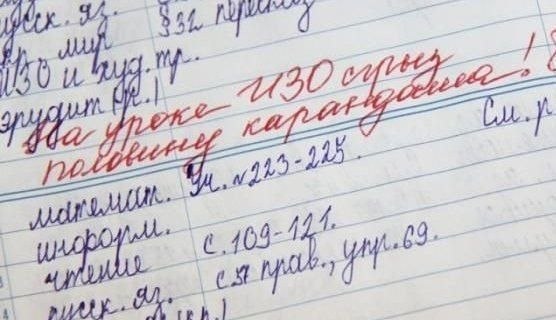 русск. яз. §32 пересказ
окр. мир
ИЗО и худ. тр.
эрудит (кр.)
На уроке ИЗО сгрыз
половину карандаша!
См. р
математ. Уч. №223-225.
информ.
чтение с. 109-121.
русск. яз. с.57 прав., упр. 69.
(кр.)